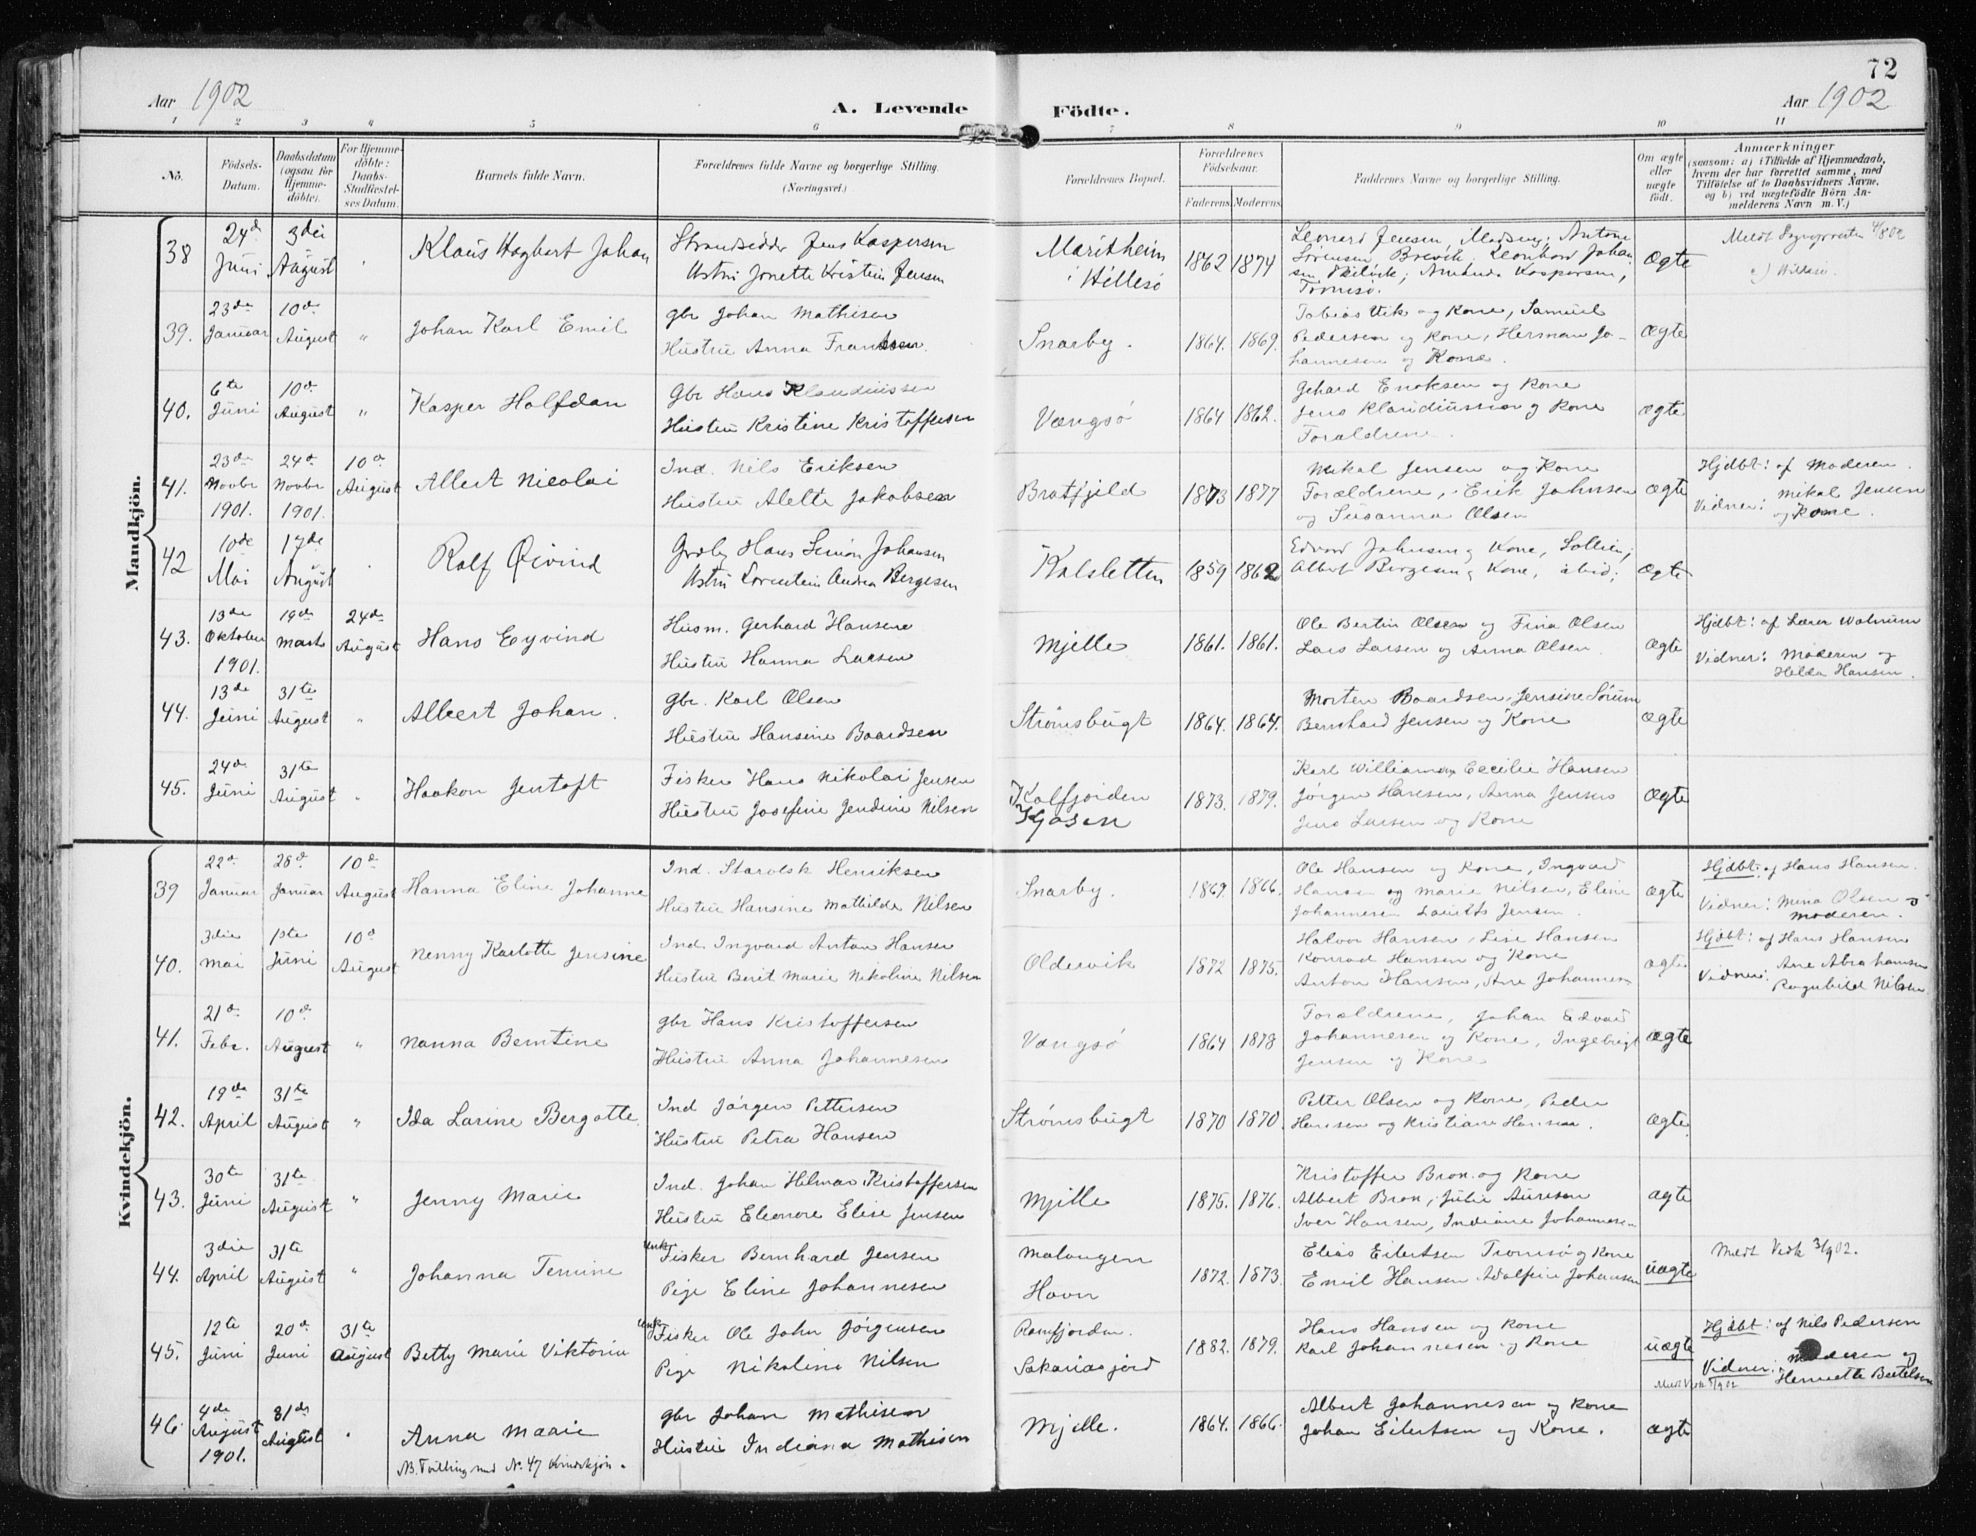 72
Aar 1902
A. Levende Födte.
Aar 1902
1 2 3 4 5 6 7 8 9 10 11
No.
Födsels-Datum.
Daabsdatum (ogsaa for Hjemmedöbte).
For Hjemmedöbte: Daabs-Stadfæstelses Datum.
Barnets fulde Navn.
Forældrenes fulde Navne og borgerlige Stilling. (Næringsvei.)
Forældrenes Bopæl.
Forældrenes Födselsaar.
Faderens Moderens
Faddernes Navne og borgerlige Stilling.
Om ægte eller uægte födt.
Anmærkninger
(saasom: a) i Tilfælde af Hjemmedaab,
hvem der har forrettet samme, med
Tilföielse af to Daabsvidners Navne,
og b) ved uægtefödte Börn An-
melderens Navn m. V.)
Mandkjön.
38 24de Juni 3dei August Klaus Hagbart Johan
Strandsidder Jens Kaspersen
Ustru Jonette Kristin Jensen
Maritheim i Hillesø 1862 1874
Leonard Jensen, Madseng; Antone
Sørensen Brevik; Leonhard Johan
sen ; Amanda Kaspersen,
Tromsø.
Ægte
39. 23de Januar 10de August " Johan Karl Emil
gbr Johan Mathisen
Hustru Anna Frantsen.
Snarby. 1864. 1869.
Tobias Vik og Kone, Samuel
Pedersen og Kone, Herman Jo-
hannesen og Kone.
Ægte
40. 6te Juni 10de August " Kasper Halfdan
Gbr Hans Klaudiussen
Hustru Kristine Kristoffersen
Vængsø 1864 1862.
Gehard Enoksen og Kone
Jens Klaudiussen og Kone
Forældrene.
ægte
41. 23de Novbr 1901. 24de Novbr 1901. 10de August Albert Nicolai
Ind. Nils Eriksen
Hustru Alette Jakobsen
Bratfjeld 1873 1877
Mikal Jensen og Kone
Forældrene, Erik Johnsen
og Susanna Olsen
Ægte
Hjdbt: af Moderen.
Vidner: Mikal Jensen
og Kone.
42 10de Mai 17de August Rolf Øivind
Grdbr Hans Simon Johansen
Ustru Lorentein Andrea Bergesen
Kalsletten 1859 1862
Edvard Johnsen og Kone, Sollien;
Albert Bergesen og Kone, ibid;
Ægte
43. 13de Oktober 1901. 19de Marts 24de August Hans Eyvind
Husm. Gerhard Hansen
Hustru Hanna Larsen
Mjelle 1861. 1861.
Ole Bertin Olsen og Fina Olsen
Lars Larsen og Anna Olsen.
Ægte
Hjdbt: af Lærer Walnum
Vidner: Moderen og
Helda Hansen.
44. 13de Juni 31te August " Albert Johan.
gbr. Karl Olsen
Hustru Hansine Baardsen
Strømsbugt 1864. 1864.
Morten Baardsen, Jensine Sørum
Bernhard Jensen og Kone
Ægte
45. 24de Juni 31te August " Haakon Jentoft
Fisker Hans Nikolai Jensen
Hustru Josefine Jendine Nilsen
Kalfjorden
Kjosen 1873. 1879.
Karl William Cecilie Hansen
Jørgen Hansen, Anna Jensen
Jens Larsen og Kone
Ægte
Kvindekjön.
39 22de Januar 28de Januar 10de August Hanna Eline Johanne
Ind. Starolsk Henriksen
Hustru Hansine Mathilde Nilsen
Snarby. 1869. 1866.
Ole Hansen og Kone, Ingvard
Hansen og Marie Nilsen, Eline
Johannesen Jensen.
Ægte
Hjdbt: af Hans Hansen.
Vidner: Mina Olsen og
Moderen.
40. 3die Mai 1ste Juni 10de August Nenny Karlotte Jensine
Ind. Ingvard Antan Hansen
Hustru Berit Marie Nikoline Nilsen
Oldervik 1872 1875.
Halvor Hansen, Lise Hansen
Konrad Hansen og Kone
Anton Hansen, Ane Johannes-
ægte
Hjdbt: af Hans Hansen
Vidner: Ane Abrahamsen
Ragnhild Nilsen.
41. 21de Febr. 10de August " Nanna Berntine
gbr Hans Kristoffersen
Hustru Anna Johannesen
Vængsø 1864 1878
Forældrene, Johan Edvard
Johannesen og Kone, Ingebrigt
Jensen og Kone
Ægte
42. 19de April 31te August " Ida Larine Bergatte.
Ind Jørgen Pettersen
Hustru Petra Hansen
Strømsbugt 1870 1870.
Petter Olsen og Kone, Peder
Hansen og Kristiane Hansen.
Ægte.
43. 30te Juni 31te August " Jenny Marie
Ind. Johan Hilmar Kristoffersen
Hustru Eleonore Elise Jensen
Mjelle 1875. 1876.
Kristoffer Brox og Kone
Albert Brox, Julie Auresen
Iver Hansen, Indiane Johannesen
Ægte
44. 3die April 31te August " Johanna Temine
Unk. Fisker Bernhard Jensen
Pige Eline Johannesen
Malangen
Havn 1872. 1873.
Elias Eilertsen Tromsø og Kone
Emil Hansen Adolfine Johansen
uægte
Meldt Vedk 3/9 02.
45. 12te Juni 20de Juni 31te August Betty Marie Viktoria
Unk. Fisker Ole John Jørgensen
Pige Nikoline Nilsen
Ramfjorden.
Sakariasjord 1882. 1879.
Hans Hansen og Kone
Karl Johannesen og Kone
uægte
Hjdbt: af Nils Pedersen
Vidner: Moderen og
Henriette Bertelsen
46. 4de August 1901. 31de August Anna Marie
N.B. Tvilling med No. 47 Kvindekjøn.
gbr Johan Mathisen
Hustru Indiana Mathisen
Mjelle. 1864. 1866.
Albert Johannesen og Kone
Johan Eilertsen og Kone.
ægte